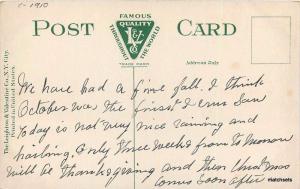 c-1910
POST CARD
FAMOUS
QUALITY
THROUGHOUT THE WORLD
L&V
TRADE MARK
Address Only
The Leighton & Valentine Co., N.Y. City.
Printed in United States.
We have had a fine fall. I think
October was the finest I ever saw
Today is not very nice raining and
hailing. Only three weeks from To Morrow
will be Thanksgiving and then Christmas
comes soon after
Hatchsets